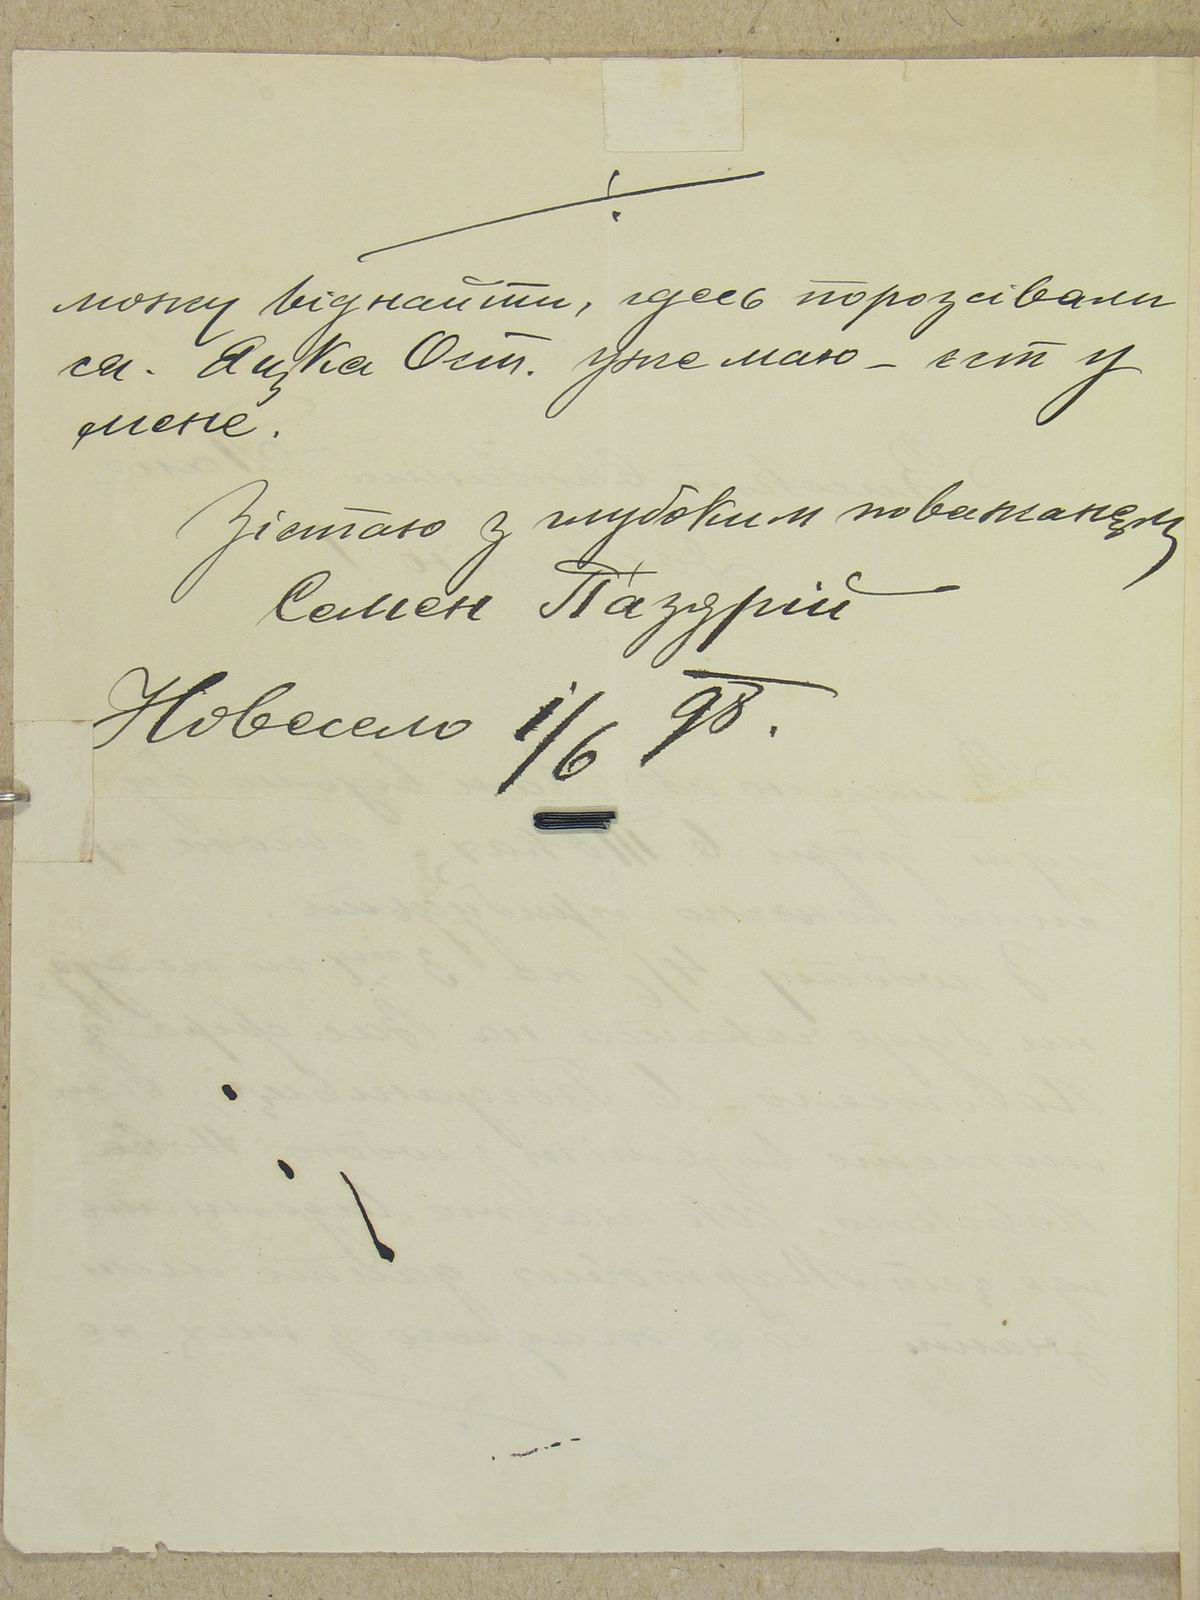 можу віднайти, гдесь порозсівали
ся. Яцка Ост. уже маю – єст у
мене.
Зістаю з глубоким поважанєм
Семен Паздрій
Новесело 1/6 98.